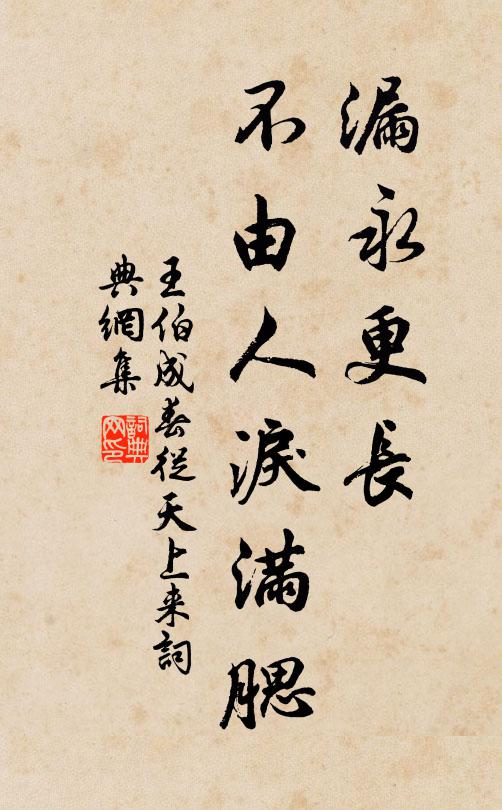 漏永更長
不由人淚滿腮
王伯成春從天上来詞
典網集
詞典網印